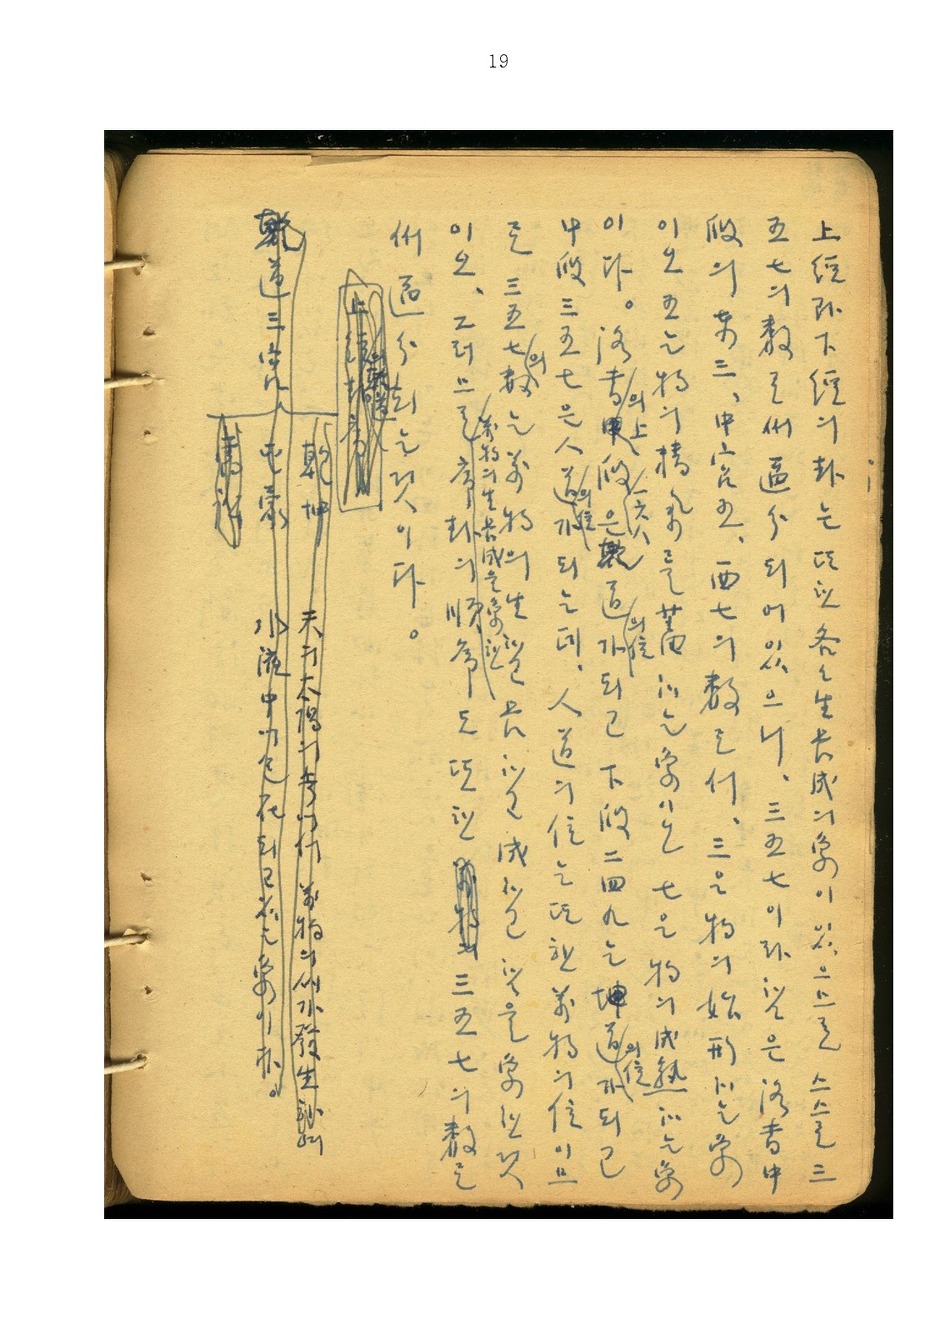 19
上經과 下經의 卦는 또한 各各 生長成의 象이 있으므로 스스로 三
五七의 數로써 區分되어 있으니、三五七이라 함은 洛書中
段의 東三、中宮五、西七의 數로서、三은 物의 始形하는 象
이오 五는 物의 를 하는 象이오 七은 物의 成熟하는 象
이다。洛書의 上段 一六八은 乾道의 位가 되고 下段 二四九는 坤道의 位가 되고
中段 三五七은 人道의 位가 되는데、人道의 位는 또한 萬物의 位이므
로 三五七의 數는 萬物의 生하고 長하고 成하고 함을 象한 것
이오、그러므로 萬物의 生長成을 象한 序卦의 順序도 또한 三五七의 數로
써 區分되는 것이다。
乾道三宮
乾坤 天의 太陽의 에서 萬物의 가 發生
屯蒙 水 中에 包在되고 있는 象이라。
需訟